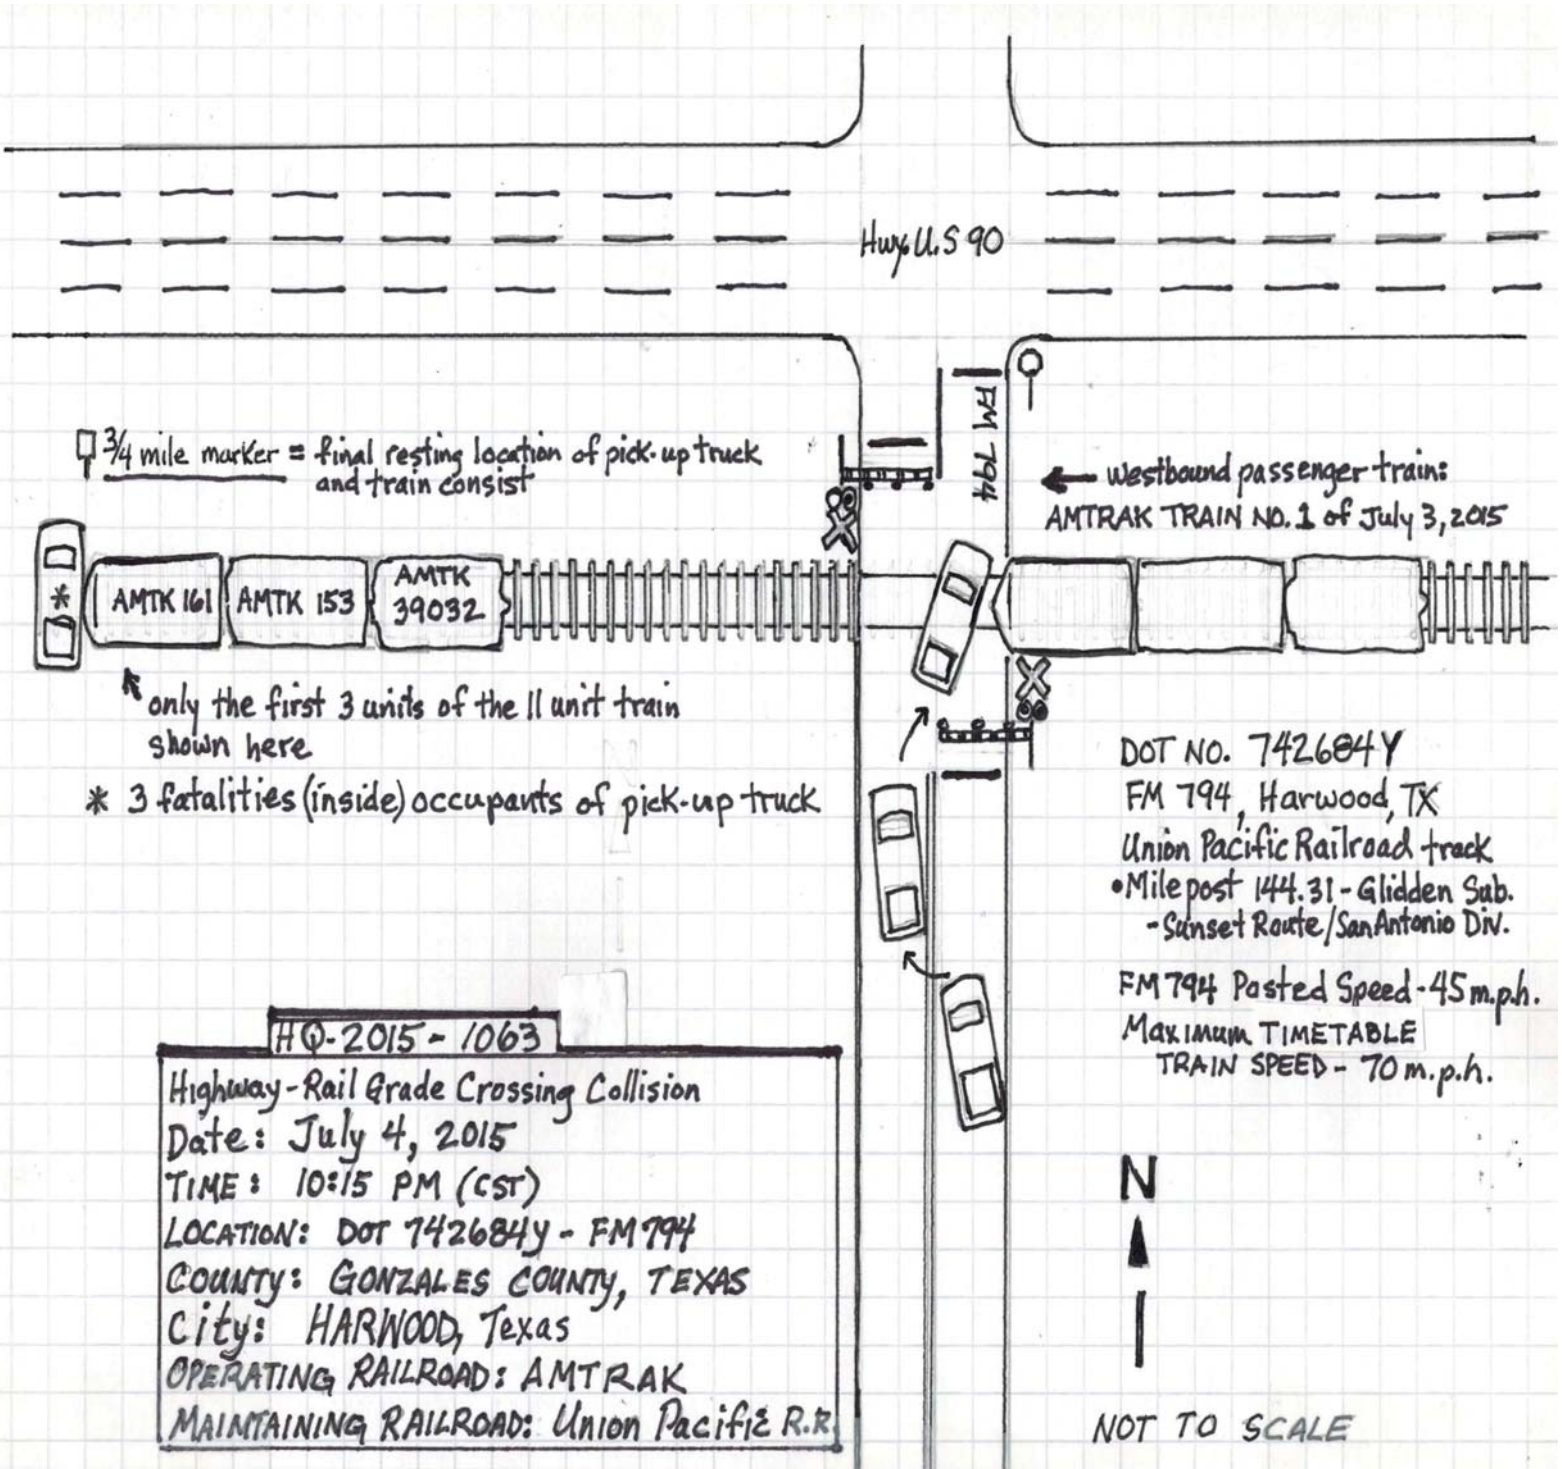 Hwy. U.S 90
FM 794
3/4 mile marker = final resting location of pick-up truck
and train consist
← westbound passenger train:
AMTRAK TRAIN NO. 1 of July 3, 2015
AMTK 161
AMTK 153
AMTK
39032
*
only the first 3 units of the 11 unit train
shown here
* 3 fatalities (inside) occupants of pick-up truck
DOT NO. 742684Y
FM 794, Harwood, TX
Union Pacific Railroad track
•Milepost 144.31 - Glidden Sub.
- Sunset Route/San Antonio Div.
FM 794 Posted Speed - 45 m.p.h.
Maximum TIMETABLE
TRAIN SPEED - 70 m.p.h.
HQ-2015-1063
Highway-Rail Grade Crossing Collision
Date: July 4, 2015
TIME: 10:15 PM (CST)
LOCATION: DOT 742684y - FM 794
COUNTY: GONZALES COUNTY, TEXAS
City: HARWOOD, Texas
OPERATING RAILROAD: AMTRAK
MAINTAINING RAILROAD: Union Pacific R.R.
N
NOT TO SCALE